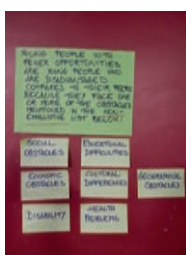 YOUNG PEOPLE WITH
FEWER OPPORTUNITIES
ARE YOUNG PEOPLE WHO
ARE DISADVANTAGED
COMPARED TO THEIR PEERS
BECAUSE THEY FACE ONE
OR MORE OF THE OBSTACLES
MENTIONED IN THE NON-
EXHAUSTIVE LIST BELOW:
SOCIAL
OBSTACLES
EDUCATIONAL
DIFFICULTIES
ECONOMIC
OBSTACLES
CULTURAL
DIFFERENCES
GEOGRAPHICAL
OBSTACLES
DISABILITY
HEALTH
PROBLEMS